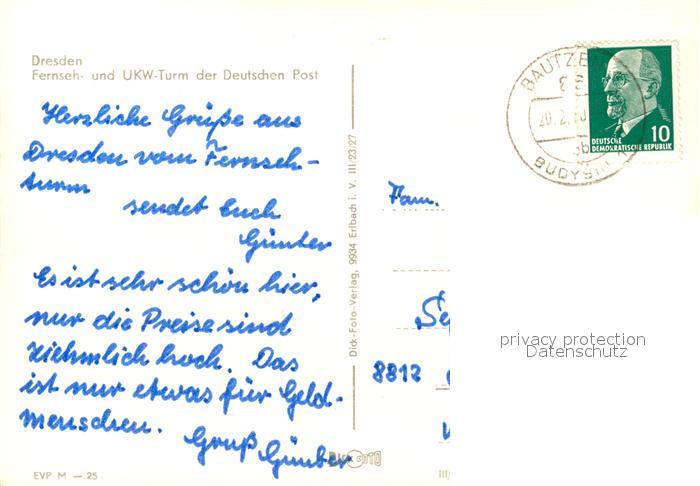 Dresden
Fernseh- und UKW-Turm der Deutschen Post
Herzliche Grüße aus
Dresden vom Fernseh-
turm
sendet Euch
Günter
Es ist sehr schön hier,
nur die Preise sind
ziehmlich hoch. Das
ist nur etwas für Geld-
menschen.
Gruß
Günter
EVP M —.25
Dick-Foto-Verlag, 9934 Erlbach i. V. III/23/27
BAUTZEN
BUDYŠIN
10
DEUTSCHE
DEMOKRATISCHE REPUBLIK
Fam.
8812
privacy protection
Datenschutz